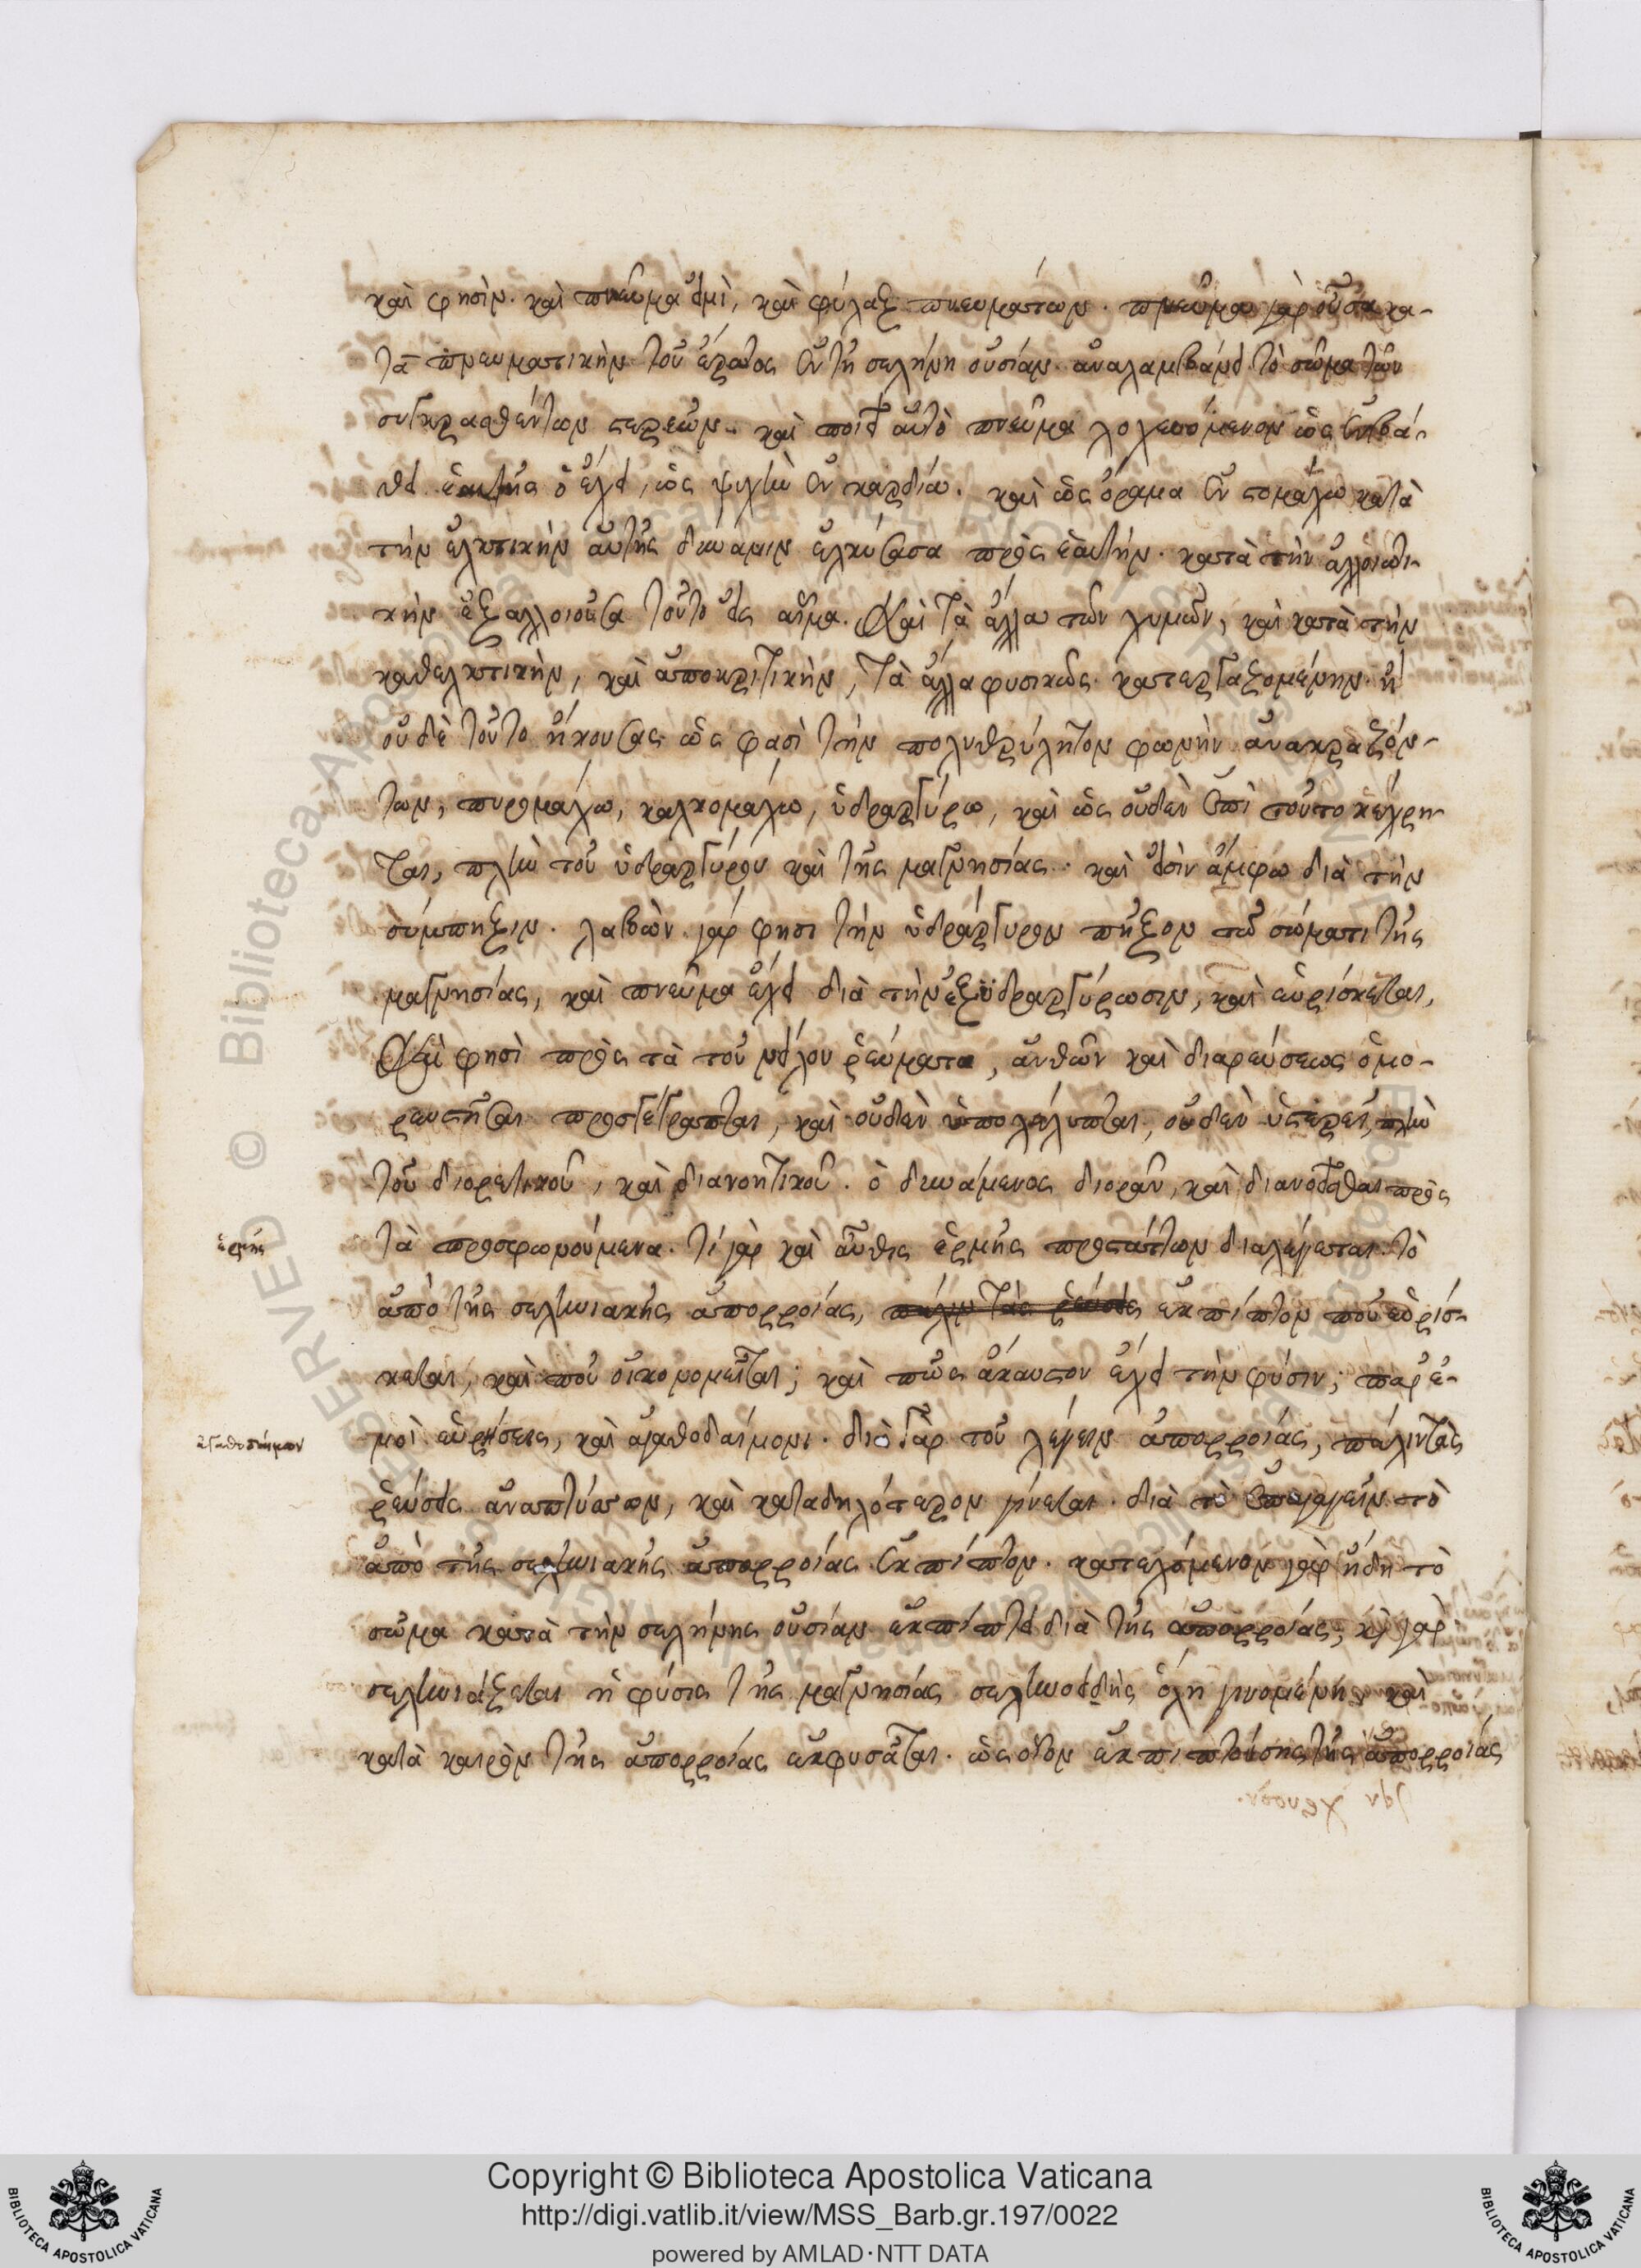 καὶ φησὶν. καὶ πνεῦμα εἰμὶ, καὶ φύλαξ πνευμάτων. πνεῦμα γὰρ οὖσα κα-
τὰ πνευματικὴν τοῦ ἐν τῇ σελήνῃ οὐσίαν. ἀναλαμβάνει τὸ σῶμα τῶν
συγκραθέντων στερεῶν. καὶ ποιεῖ αὐτὸ πνεῦμα ὡς
ἑαυτῆς ὃ ἔχει, ὡς ψυχὴν ἐν καρδίᾳ. καὶ ὡς ὅραμα ἐν στομάχῳ κατὰ
τὴν ἑλκτικὴν αὐτῆς δύναμιν ἑλκύσασα πρὸς ἑαυτήν. κατὰ τὴν ἀλλοιωτι-
κὴν ἐξαλλοιοῦσα τοῦτο εἰς αἷμα. Καὶ τὰ ἄλλα τῶν χυμῶν, καὶ κατὰ τὴν
καθελκτικὴν, καὶ ἀποκριτικὴν, τὰ ἄλλα φυσικῶς κατεργαζομένην. ἢ
οὐδὲ τοῦτο ἤκουσας ὡς φασὶ τὴν πολυθρύλητον φωνὴν ἀνακραζόν-
των, πυρομάχῳ, χαλκομάχῳ, ὑδραργύρῳ, καὶ ὡς οὐδὲν ἐπὶ τοῦτο κέχρη-
ται, πλὴν τοῦ ὑδραργύρου καὶ τῆς μαγνησίας. καὶ εἰσὶν ἄμφω διὰ τὴν
σύμπηξιν. λαβὼν γάρ φησι τὴν ὑδράργυρον πῆξον τῷ σώματι τῆς
μαγνησίας, καὶ πνεῦμα ἔχει διὰ τὴν ἐξυδραργύρωσιν, καὶ εὑρίσκεται,
Καὶ φησὶ πρὸς τὰ τοῦ νείλου ῥεύματα, ἀνθῶν καὶ διαρεύσεως ὁμο-
ρευστῆσαι προσγέγραπται, καὶ οὐδὲν ὑπολέλειπται, οὐδὲν ὑστερεῖ, πλὴν
τοῦ διορετικοῦ, καὶ διανοητικοῦ. ὁ δυνάμενος διορᾶν, καὶ διανοεῖσθαι πρὸς
τὰ προσφωνούμενα. τί γὰρ καὶ αὖθις ἑρμῆς προστάττων διαλέγεται. τὸ
ἑρμῆς
ἀπὸ τῆς σεληνιακῆς ἀπορροίας, πάλιν τὰς ῥεύσεις ἐκπίπτον ποῦ εὑρίσ-
κεται, καὶ ποῦ οἰκονομεῖται; καὶ πῶς ἄκαυστον ἔχει τὴν φύσιν; παρ' ἐ-
μοὶ εὑρήσεις, καὶ ἀγαθοδαίμονι. διὸ γὰρ τοῦ λέγειν ἀπορροίας, πάλιν τὰς
ἀγαθοδαίμων
ῥεύσεις ἀναπτύσσων, καὶ καταδηλότερον γίνεται. διὰ τὸ ἐπαγαγεῖν τὸ
ἀπὸ τῆς σεληνιακῆς ἀπορροίας ἐκπίπτον. κατεχόμενον γὰρ ἤδη τὸ
σῶμα κατὰ τὴν σελήνης οὐσίαν ἐκπίπτει διὰ τῆς ἀπορροίας, καὶ γὰρ
σεληνιάζεται ἡ φύσις τῆς μαγνησίας σεληνοειδὴς ὅλη γινομένη, καὶ
κατὰ καιρὸν τῆς ἀπορροίας ἐκφυσᾶται. ὡς οἷον ἐκπιπτούσης τῆς ἀπορροίας
Copyright © Biblioteca Apostolica Vaticana
http://digi.vatlib.it/view/MSS_Barb.gr.197/0022
powered by AMLAD·NTT DATA
BIBLIOTECA APOSTOLICA VATICANA
BIBLIOTECA APOSTOLICA VATICANA